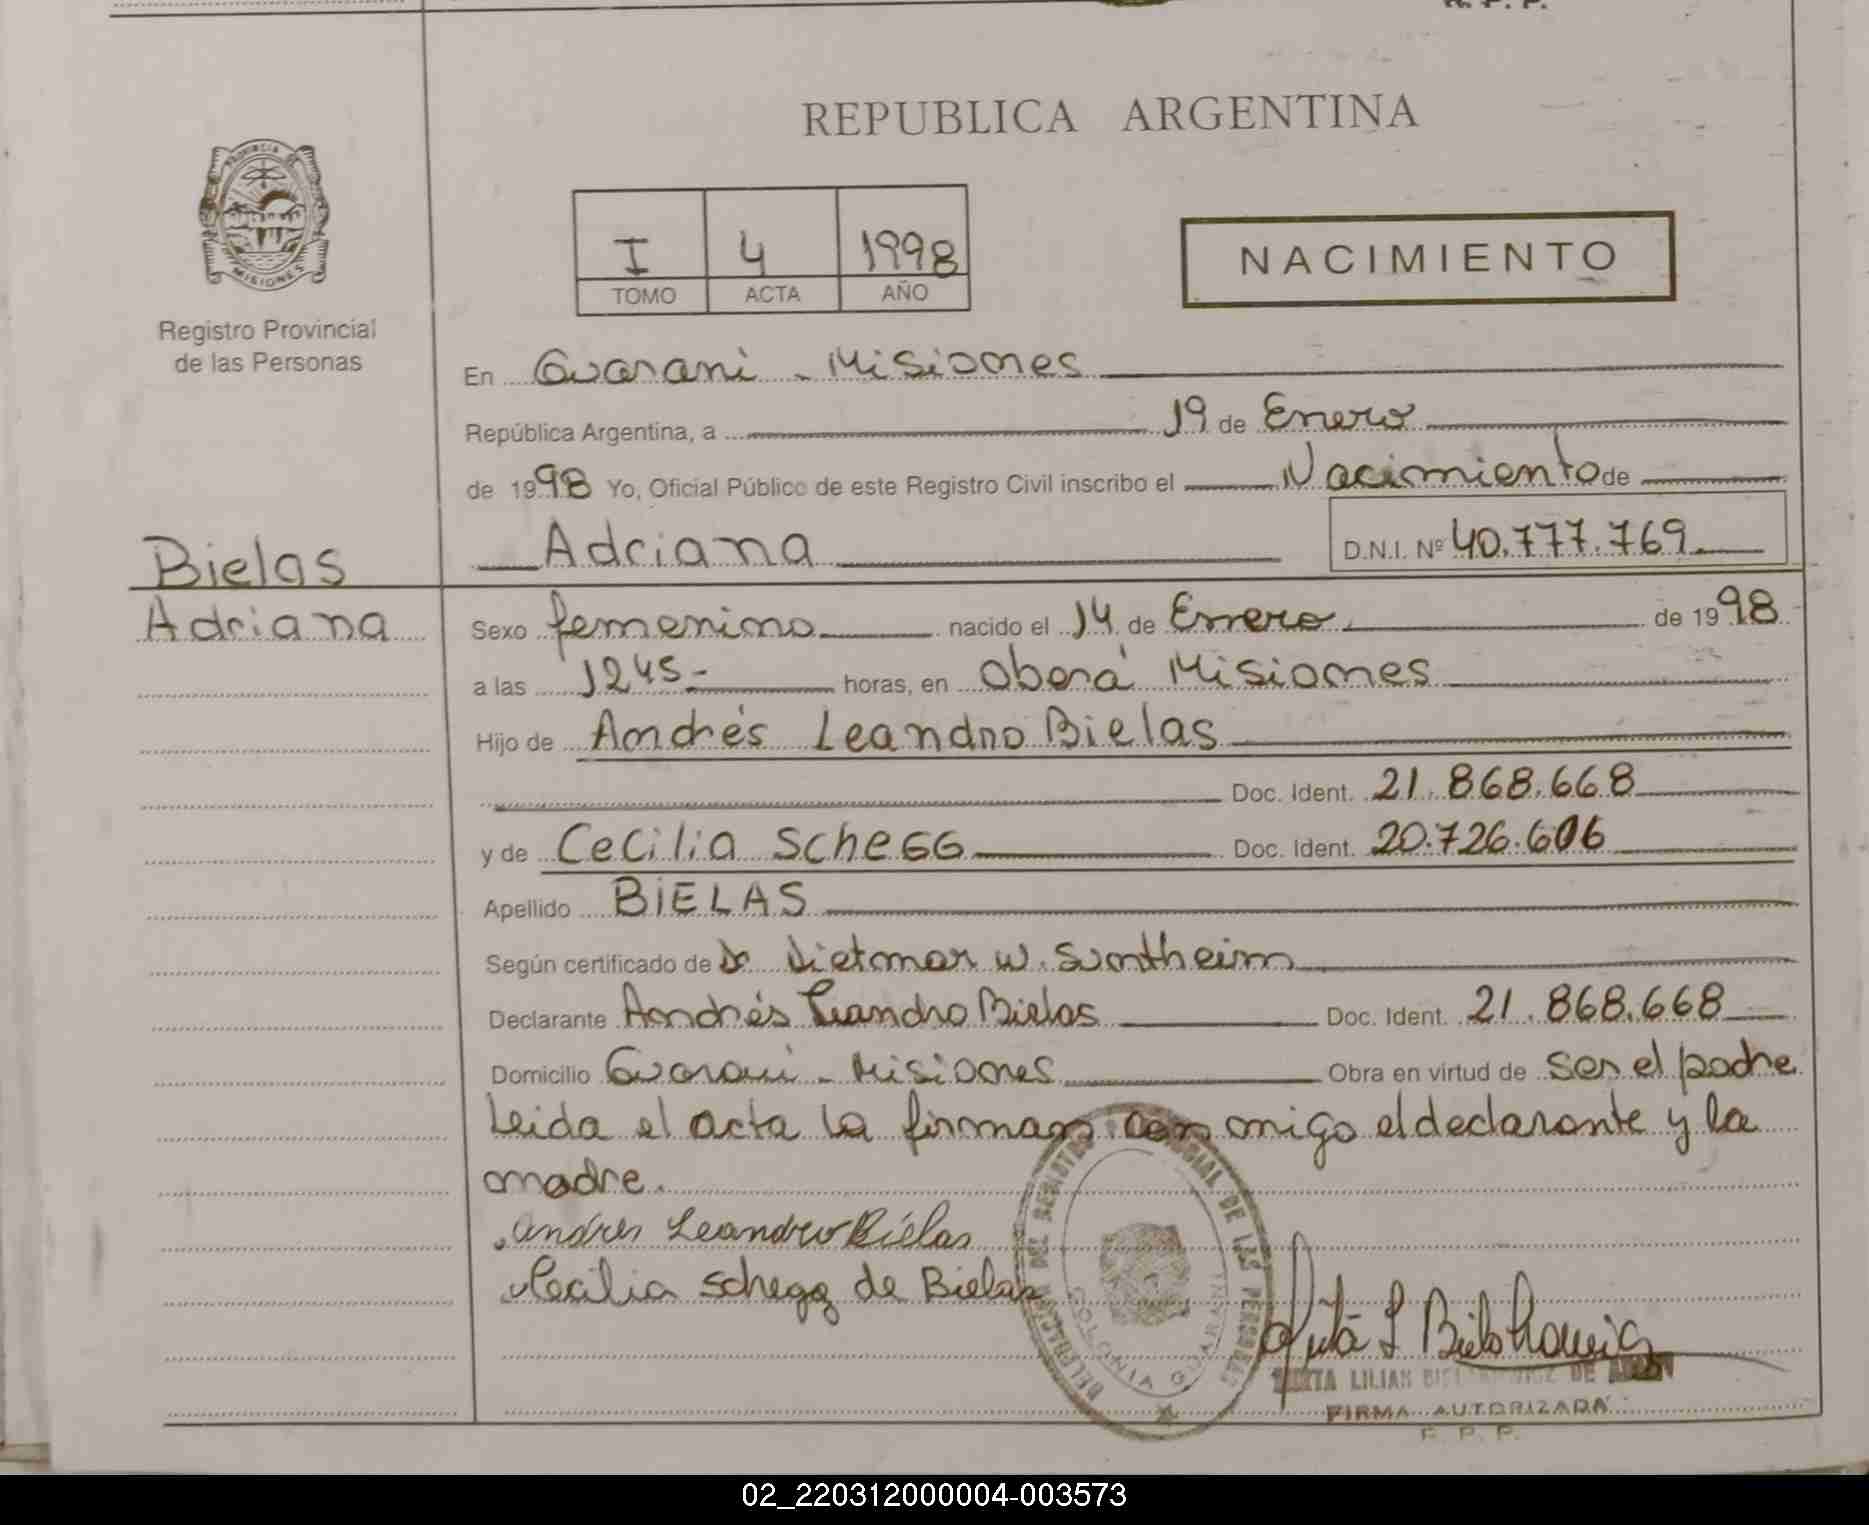 REPUBLICA ARGENTINA
PROVINCIA DE
MISIONES
Registro Provincial
de las Personas
I 4 1998
TOMO ACTA AÑO
NACIMIENTO
En Guarani - Misiones
República Argentina, a 19 de Enero
de 1998 Yo, Oficial Público de este Registro Civil inscribo el Nacimiento de
Adriana D.N.I. Nº 40.777.769
Bielas
Adriana
Sexo femenino nacido el 14 de Enero de 1998
a las 1245- horas, en Oberá Misiones
Hijo de Andrés Leandro Bielas
Doc. Ident. 21.868.668
y de Cecilia Schegg Doc. Ident. 20.726.606
Apellido BIELAS
Según certificado de Dr Dietmar W. Sontheim
Declarante Andrés Leandro Bielas Doc. Ident. 21.868.668
Domicilio Guarani - Misiones Obra en virtud de ser el padre
Leida el acta la firman con migo el declarante y la
madre.
Andres Leandro Bielas
Cecilia Schegg de Bielas
DEL REGISTRO PROVINCIAL DE LAS PERSONAS
COLONIA GUARANI
LILIAN DE
FIRMA AUTORIZADA
R. P. P.
02_220312000004-003573